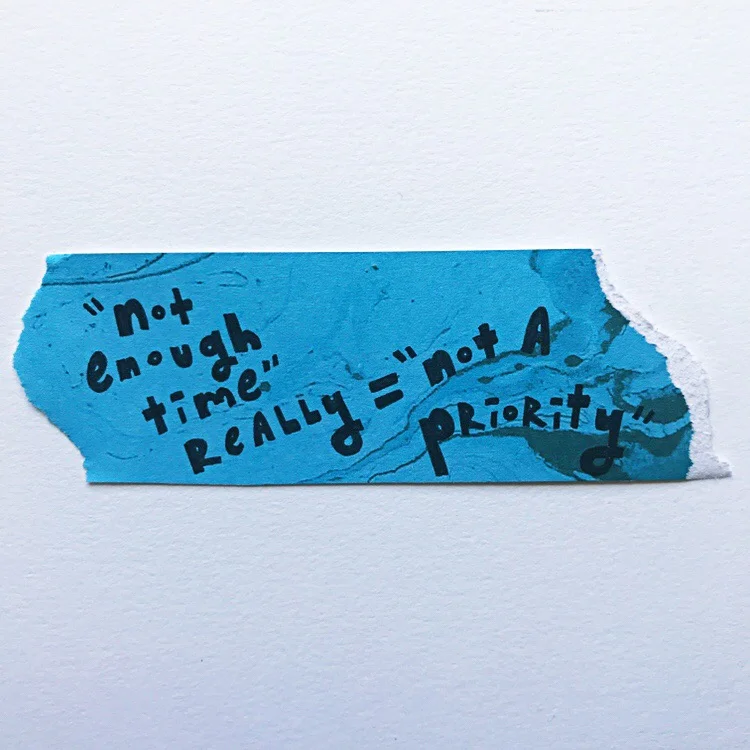 "not
enough
time"
REALLy = "not A
PRiORity"